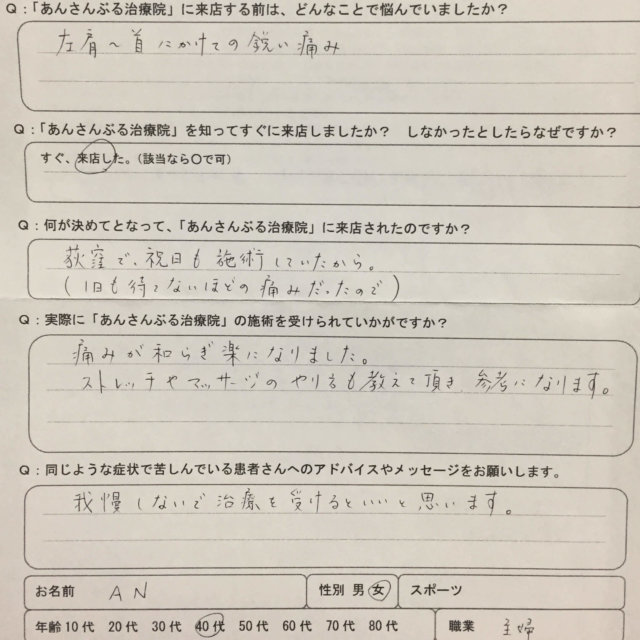 Q：「あんさんぶる治療院」に来店する前は、どんなことで悩んでいましたか？
左肩～首にかけての鋭い痛み
Q：「あんさんぶる治療院」を知ってすぐに来店しましたか？　しなかったとしたらなぜですか？
すぐ、来店した。（該当なら〇で可）
Q：何が決めてとなって、「あんさんぶる治療院」に来店されたのですか？
荻窪で、祝日も施術していたから。
（1日も待てないほどの痛みだったので）
Q：実際に「あんさんぶる治療院」の施術を受けられていかがですか？
痛みが和らぎ楽になりました。
ストレッチやマッサージのやり方も教えて頂き参考になります。
Q：同じような症状で苦しんでいる患者さんへのアドバイスやメッセージをお願いします。
我慢しないで治療を受けるといいと思います。
お名前　AN　性別 男 女　スポーツ
年齢 10代　20代　30代　40代　50代　60代　70代　80代　職業　主婦